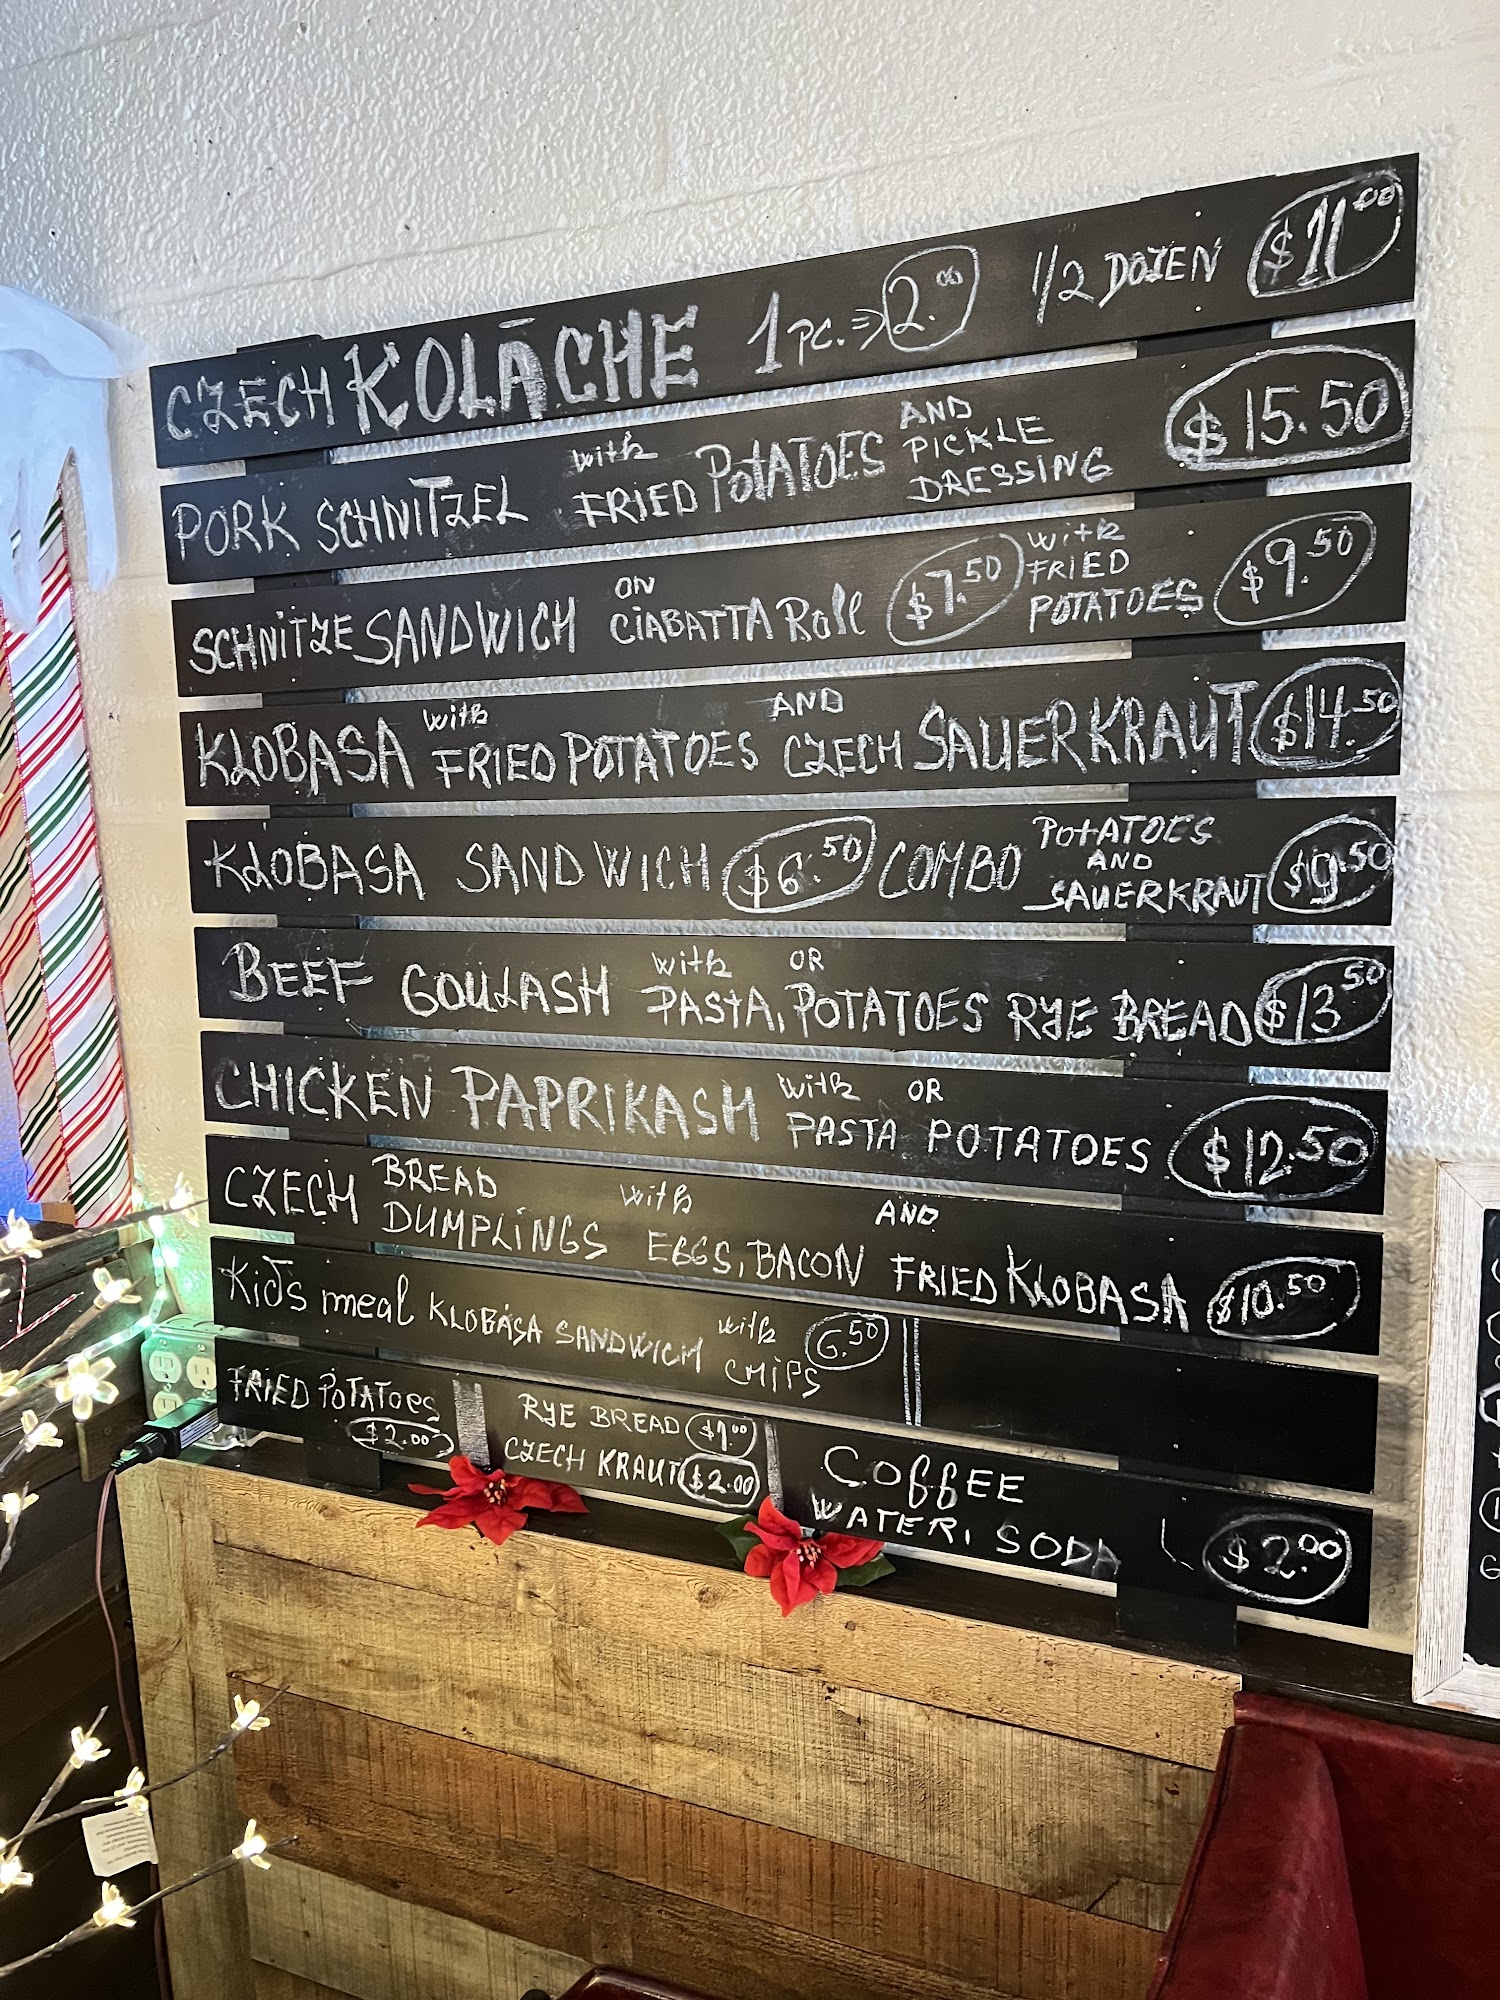 CZECH KOLĀCHE 1 PC. ⇒ 2.00 1/2 DOZEN $11.00
PORK SCHNITZEL with FRIED POTATOES AND PICKLE DRESSING $15.50
SCHNITZE SANDWICH ON CIABATTA Roll $7.50 with FRIED POTATOES $9.50
KLOBASA with FRIED POTATOES AND CZECH SAUERKRAUT $14.50
KLOBASA SANDWICH $6.50 COMBO POTATOES AND SAUERKRAUT $9.50
BEEF GOULASH with PASTA, OR POTATOES RYE BREAD $13.50
CHICKEN PAPRIKASH with PASTA OR POTATOES $12.50
CZECH BREAD DUMPLINGS with EGGS, BACON AND FRIED KLOBASA $10.50
Kids meal KLOBASA SANDWICH with CHIPS 6.50
FRIED POTATOES $2.00
RYE BREAD $1.00
CZECH KRAUT $2.00
COFFEE
WATER, SODA $2.00